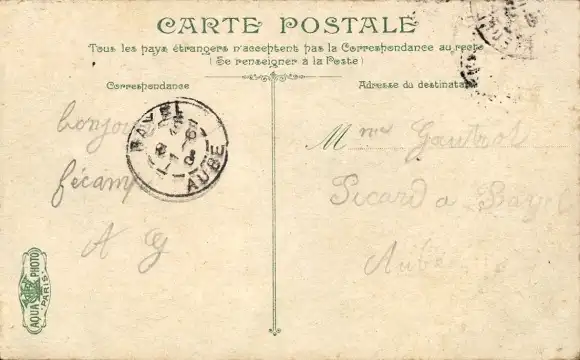 CARTE POSTALE
Tous les pays étrangers n'acceptent pas la Correspondance au recto
(Se renseigner à la Poste)
Correspondance
Adresse du destinataire
bonjour
fécamp
A G
BAYEL
AUBE
Mme Gautrot
Picard a Bayel
Aube
AQUA PHOTO
PARIS